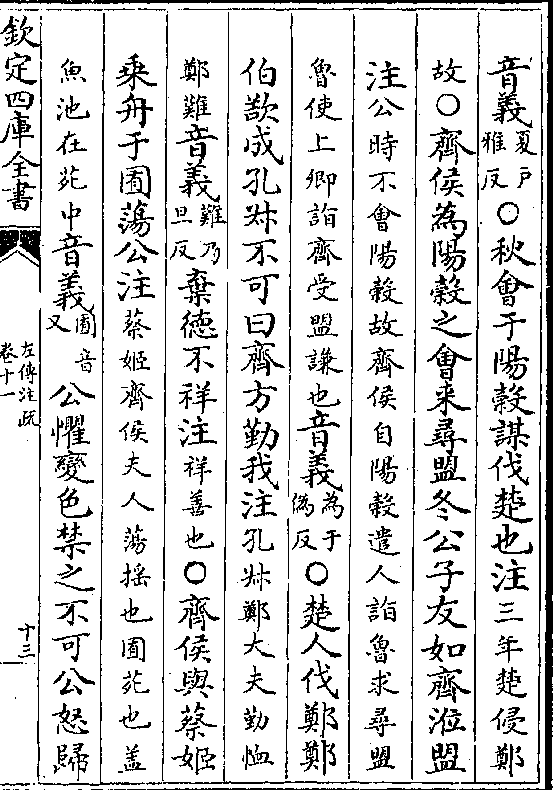 音義夏戶雅反○秋會于陽穀謀伐楚也注三年楚侵鄭
故○齊侯為陽穀之會來尋盟冬公子友如齊涖盟
注公時不會陽穀故齊侯自陽穀遣人詣魯求尋盟
魯使上卿詣齊受盟謙也音義為于偽反○楚人伐鄭鄭
伯欲成孔叔不可曰齊方勤我注孔叔鄭大夫勤恤
鄭難音義難乃旦反棄德不祥注祥善也○齊侯與蔡姬
乘舟于囿蕩公注蔡姬齊侯夫人蕩搖也囿苑也盖
魚池在苑中音義囿音又公懼變色禁之不可公怒歸
欽定四庫全書
左傳注疏
卷十一
十三